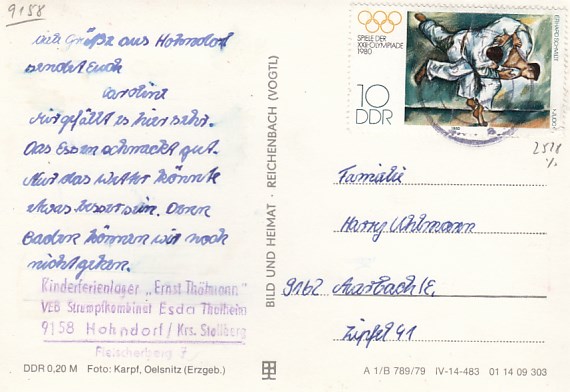 9158
viele Grüße aus Hohndorf
sendet Euch
Caroline
Mir gefällt es hier sehr.
Das Essen schmeckt gut.
Nur das Wetter könnte
etwas besser sein. Denn
Baden können wir noch
nicht gehen.
Kinderferienlager „Ernst Thälmann"
VEB Strumpfkombinat Esda Thalheim
9158 Hohndorf / Krs. Stollberg
Fleischerberg 7
DDR 0,20 M Foto: Karpf, Oelsnitz (Erzgeb.)
BILD UND HEIMAT · REICHENBACH (VOGTL)
SPIELE DER
XXII. OLYMPIADE
1980
10
DDR
Familie
Harry Uhlmann
9162 Auerbach/E.
Zipfel 41
A 1/B 789/79 IV-14-483 01 14 09 303